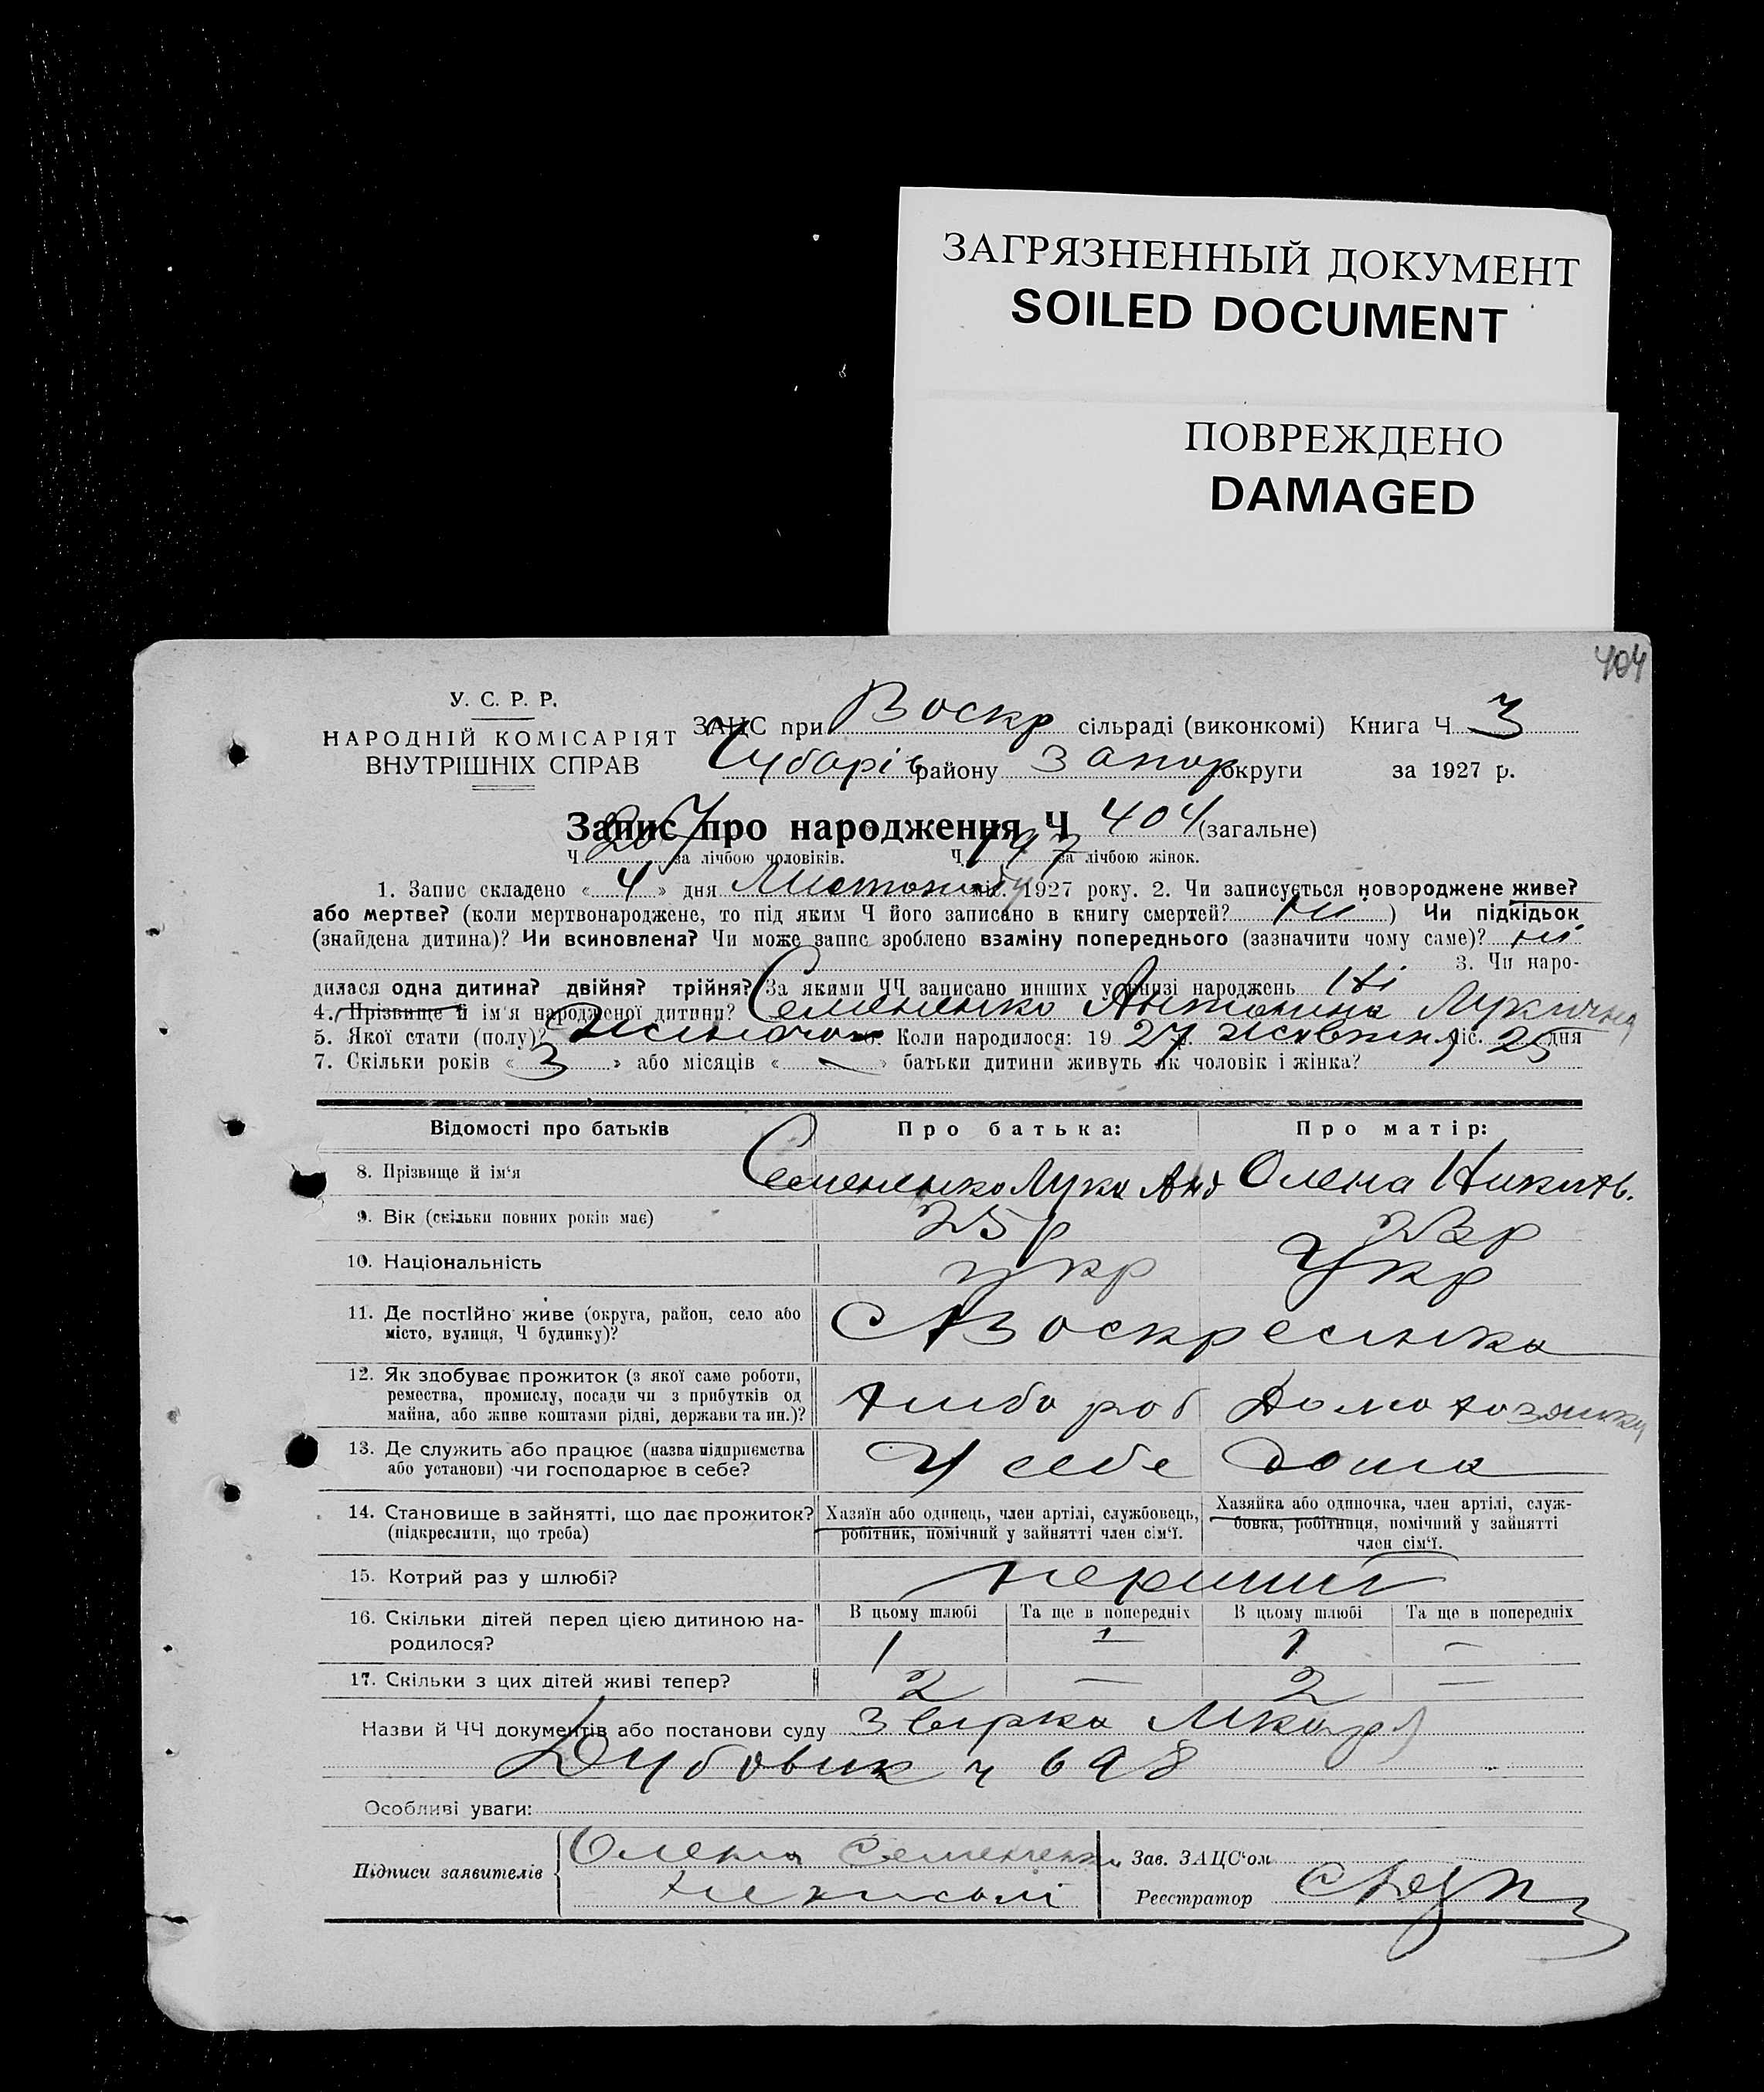 ЗАГРЯЗНЕННЫЙ ДОКУМЕНТ
SOILED DOCUMENT
ПОВРЕЖДЕНО
DAMAGED
404
У. С. Р. Р.
НАРОДНІЙ КОМІСАРІЯТ
ВНУТРІШНІХ СПРАВ
ЗАЦС при Воскр сільраді (виконкомі) Книга Ч 3
Чубарів району Запор округи за 1927 р.
Запис про народження Ч 404 (загальне)
Ч 207 за лічбою чоловіків. Ч 197 за лічбою жінок.
1. Запис складено « 4 » дня Листопаду міс. 1927 року. 2. Чи записується новороджене живе?
або мертве? (коли мертвонароджене, то під яким Ч його записано в книгу смертей? ні ) Чи підкідьок
(знайдена дитина)? Чи всиновлена? Чи може запис зроблено взаміну попереднього (зазначити чому саме)? ні
3. Чи наро-
дилася одна дитина? двійня? трійня? За якими ЧЧ записано инших у книзі народжень Ні
4. Прізвище й ім'я народженої дитини? Семененко Антонина Лукична
5. Якої стати (полу)? Жіночої 6. Коли народилося: 19 27 р. жовтня міс. 25 дня
7. Скільки років « 3 » або місяців « — » батьки дитини живуть як чоловік і жінка?
Відомості про батьків Про батька: Про матір:
8. Прізвище й ім'я Семененко Лука Анд Олена Никитів.
9. Вік (скільки повних років має) 25 р 23 р
10. Національність укр Укр
11. Де постійно живе (округа, район, село або
місто, вулиця, Ч будинку)? С Воскресенка
12. Як здобуває прожиток (з якої саме роботи,
ремества, промислу, посади чи з прибутків од
майна, або живе коштами рідні, держави та ин.)? Хлібороб Домохозяйка
13. Де служить або працює (назва підприємства
або установи) чи господарює в себе? У себе дома
14. Становище в зайнятті, що дає прожиток?
(підкреслити, що треба)
Хазяїн або одинець, член артілі, службовець,
робітник, помічний у зайнятті член сім'ї.
Хазяйка або одиночка, член артілі, служ-
бовка, робітниця, помічний у зайнятті
член сім'ї.
15. Котрий раз у шлюбі? перший
16. Скільки дітей перед цією дитиною на-
родилося?
В цьому шлюбі Та ще в попередніх В цьому шлюбі Та ще в попередніх
1 1 1 —
17. Скільки з цих дітей живі тепер? 2 — 2 —
Назви й ЧЧ документів або постанови суду
Дубовик ч 698
Особливі уваги:
Підписи заявителів Олена Семененкo
Зав. ЗАЦС'ом
Реєстратор